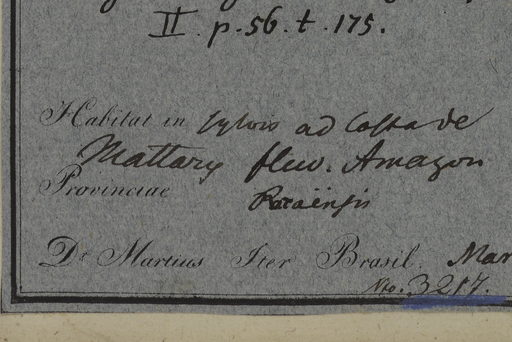 II. p. 56. t. 175.
Habitat in sylvis ad Costa de
Mattary fluv. Amazon
Provinciae Paraënsis
Dr Martius Iter Brasil. Mar
No. 3217.